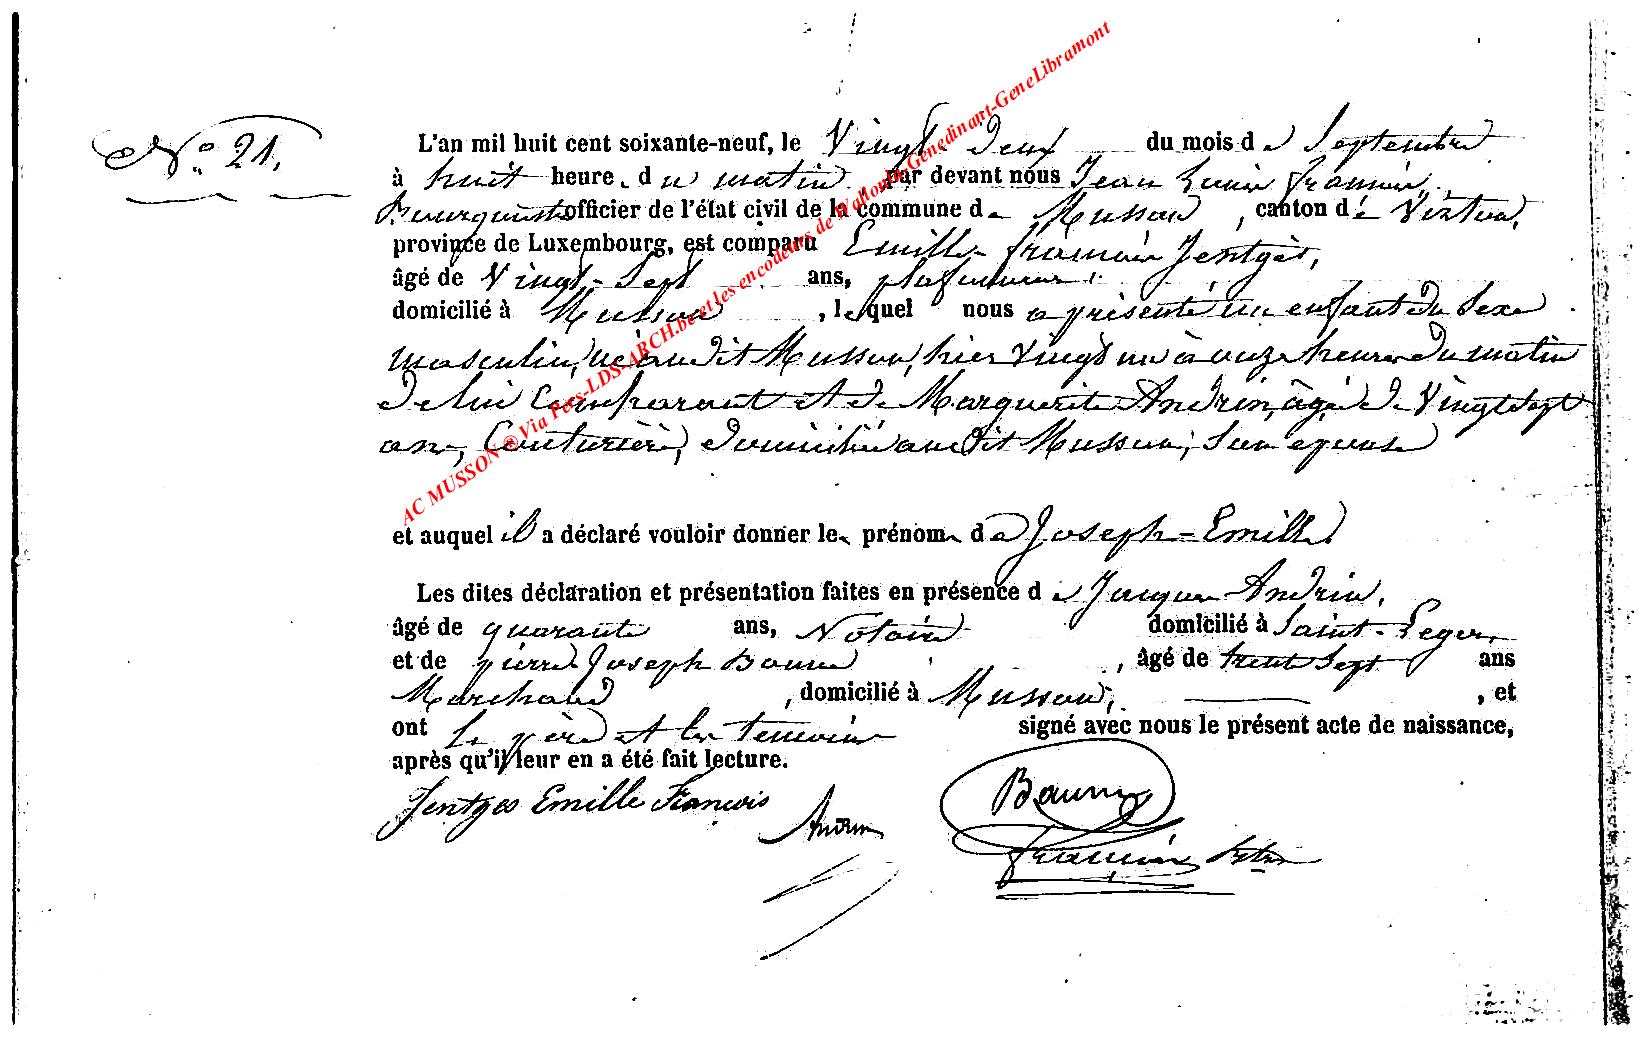 N.° 21.
L'an mil huit cent soixante-neuf, le Vingt deux du mois de Septembre
à huit heure. du matin par devant nous Jean Louis François
Bourguignon officier de l'état civil de la commune de Musson, canton de Virton,
province de Luxembourg, est comparu Emille François Jentgès,
âgé de Vingt-Sept ans, plafonneur,
domicilié à Musson, lequel nous a présenté un enfant du Sexe
masculin, né audit Musson, hier vingt un à onze heures du matin
de lui Comparant et de Marguerite Andrin, âgée de Vingt Sept
ans, Couturière, domiciliée audit Musson, Son épouse
et auquel il a déclaré vouloir donner les prénoms de Joseph-Emille
Les dites déclaration et présentation faites en présence de Jacques Andrin,
âgé de quarante ans, Notaire domicilié à Saint-Leger,
et de pierre Joseph Baune, âgé de trente Sept ans
Marchand, domicilié à Musson, , et
ont le père et les temoins signé avec nous le présent acte de naissance,
après qu'il leur en a été fait lecture.
Jentges Emille François
Andrin
Baune
François
AC MUSSON ® Via Pers-LDS-ARCH.be et les encodeurs de Wallonie-Genedinant-GeneLibramont